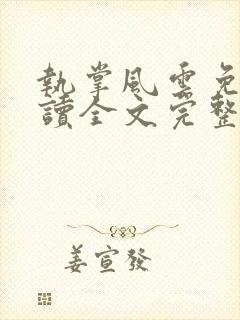 執掌風雲免
讀全文完整
姜宣發